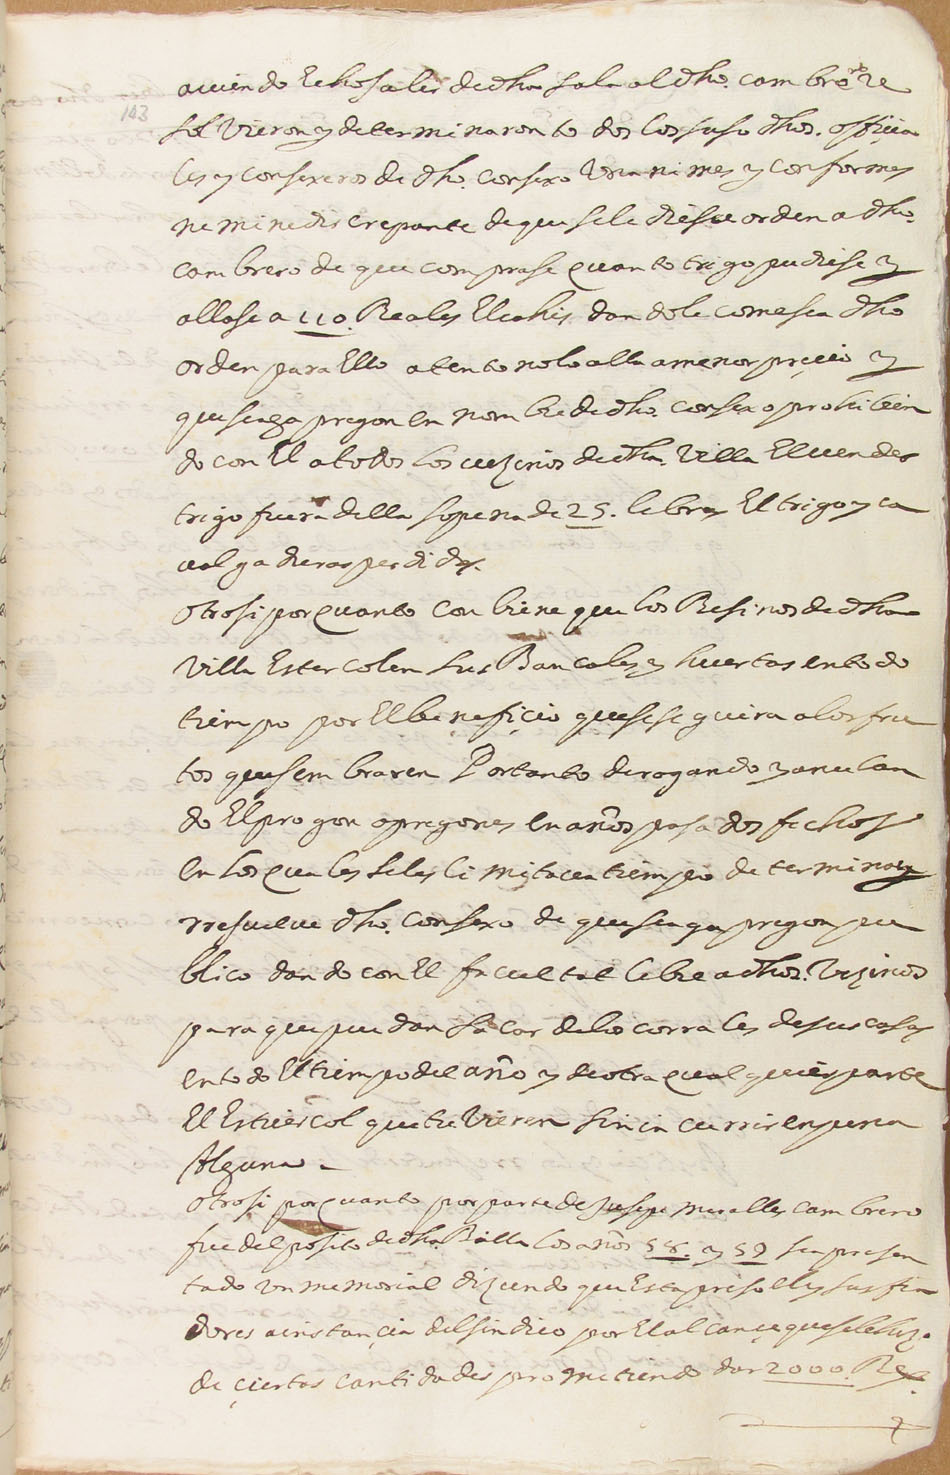 auiendo Echo salir de dha sala al dho. cambro. re
143
sol Vieron y determinaron to dos los suso dhos. offiçia
les y consexeros de dho. consexo Vna nimes y conformes
nemine discrepante de que se le diese orden a dho.
cambrero de que comprase quanto trigo pudiese y
allase a 110. Reales El cahis dandole como se a dho
orden para Ello atento no lo alla a menor preçio y
que se aga pregon en nombre de dho. consexo prohibien
do con El a todos los vezinos de dha. Villa El vender
trigo fuera della so pena de 25. libras El trigo y ca
ualgaduras perdidas.
Otrosi por quanto conbiene que los Besinos de dha
Villa Estercolen sus Bancales y huertas en todo
tiempo por El benefiçio que se seguira a los fru
tos que sembraren Por tanto derogando y anulan
do El pregon o pregones en años pasados fechos
en los quales se les limitaua tiempo determinado y
rresuelue dho. consexo de que se aga pregon pu
blico dando con El facultat libre a dhos. Vezinos
para que puedan sacar de los corrales de sus casas
en todo El tiempo del año y de otra qual quier parte
El Estiercol que tuVieren sin incurrir en pena
Alguna.
Otrosi por quanto por parte de Jusepe miralles cambrero
fue del posito de dha. Billa los años 58. y 59 se a presen
tado Vn memorial diziendo que Esta preso El y sus fia
dores a instançia del sindico por El alcançe que se le hizo.
de çiertas cantidades prometiendo dar 2000. Rs.